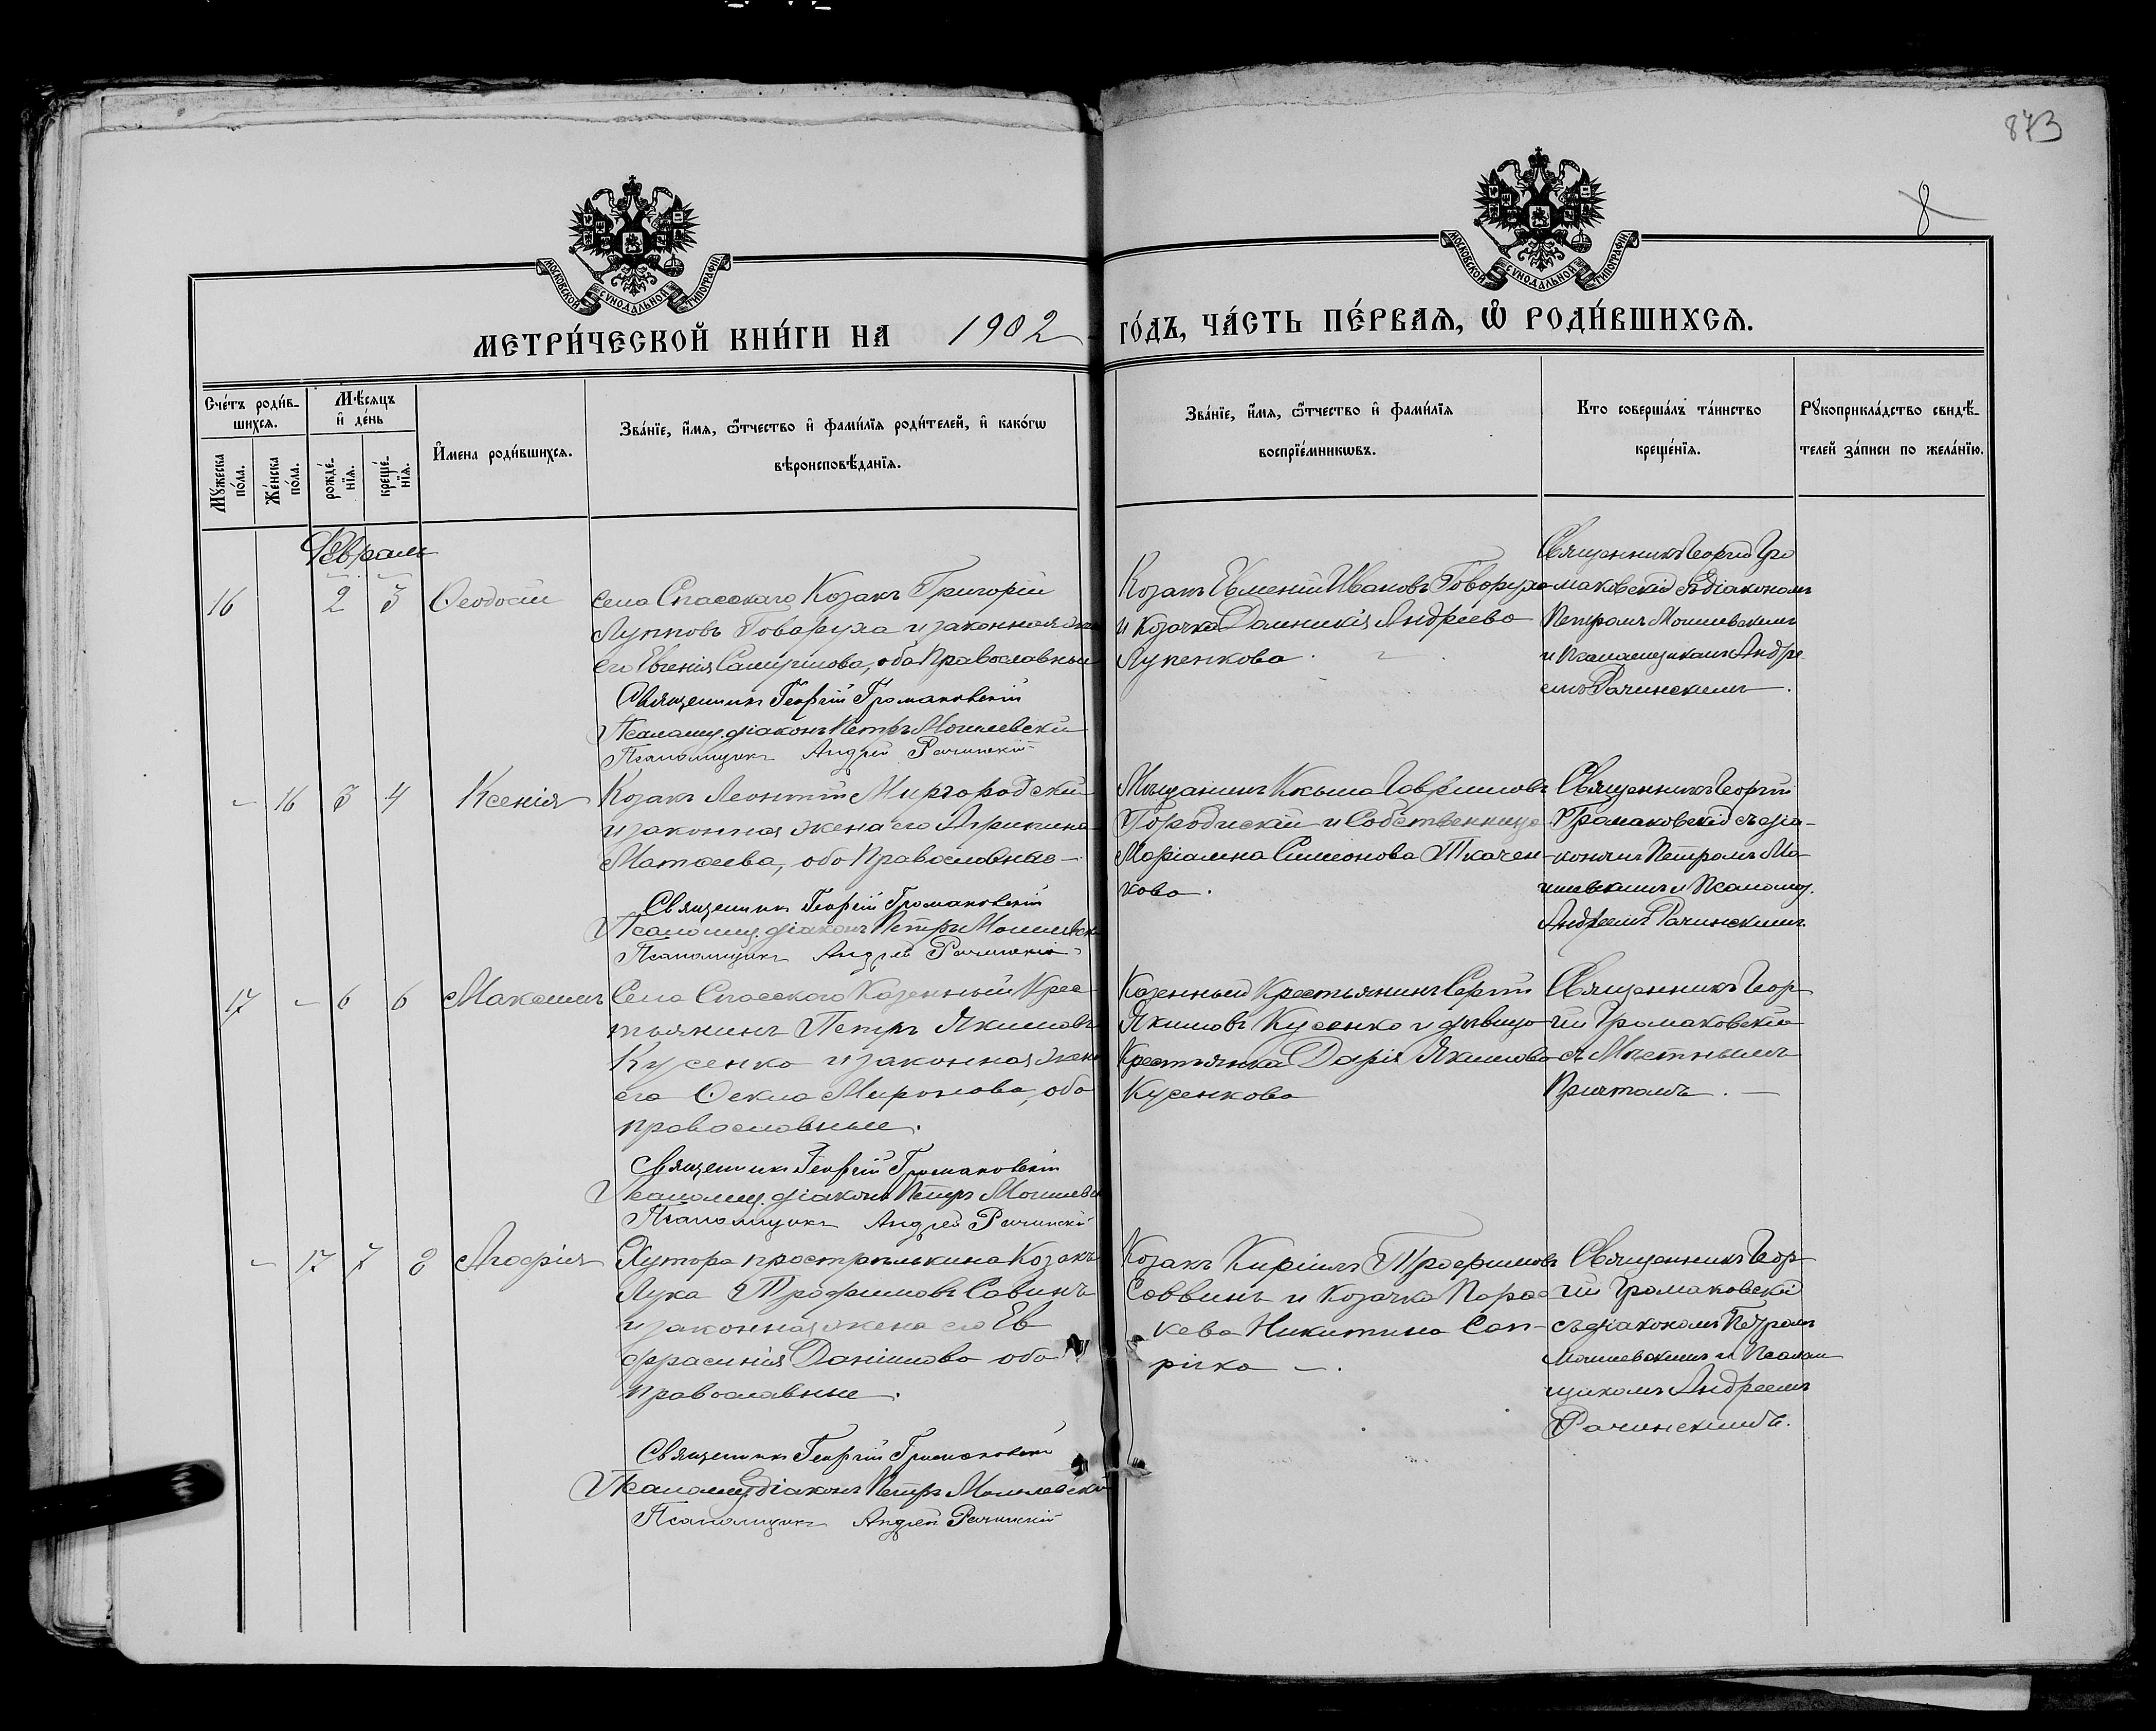 873
8
МОСКОВСКОЙ СУНОДАЛЬНОЙ ТИПОГРАФІИ
МОСКОВСКОЙ СУНОДАЛЬНОЙ ТИПОГРАФІИ
МЕТРИ́ЧЕСКОЙ КНИ́ГИ НА 1902 ГО́ДЪ, ЧА́СТЬ ПЕ́РВАЯ, Ѽ РОДИ́ВШИХСЯ.
Сче́тъ роди́в-
шихся.
Мѣ́сяцъ
и де́нь
Мꙋ́жеска по́ла.
Же́нска по́ла.
рожде́-
нїя.
креще́-
нїя.
И҆мена роди́вшихся.
Зва́нїе, и҆́мя, ѻ҆́тчество и҆ фами́лїя роди́телей, и҆ како́гѡ
вѣроисповѣ́данїя.
Зва́нїе, и҆́мя, ѻ҆́тчество и҆ фами́лїя
воспрїе́мникѡвъ.
Кто соверша́лъ та́инство
креще́нїя.
Рꙋкоприкла́дство свидѣ́-
телей за́писи по жела́нїю.
Февраль
16 2 3 Ѳеодосій
Села Спасскаго Козакъ Григорій
Луповъ Говоруха и законная жена
его Евгенія Самуилова, оба Православные
Священникъ Георгій Громаковскій
Псаломщ. діаконъ Петръ Могилевскій
Псаломщикъ Андрей Рачинскій
Козакъ Евменій Ивановъ Говоруха
и Козачка Домникія Андреева
Лупенкова.
Священникъ Георгій Гро
маковскій съ діакономъ
Петромъ Могилевскимъ
и Псаломщикомъ Андре
емъ Рачинскимъ.
- 16 3 4 Ксенія
Козакъ Леонтій Миргородскій
и законная жена его Агрипина
Матѳеева, оба Православные -
Священникъ Георгій Громаковскій
Псаломщ. діаконъ Петръ Могилевскій
Псаломщикъ Андрей Рачинскій
Мѣщанинъ Косьма Гавріиловъ
Городискій и Собственница
Маріамна Симеонова Ткачен-
кова.
Священникъ Георгій
Громаковскій съ діа-
кономъ Петромъ Мо-
гилевскимъ и Псаломщ.
Андреемъ Рачинскимъ.
17 - 6 6 Максимъ
Села Спасского Казенный Крес
тьянинъ Петръ Якимовъ
Кусенко и законная жена
его Ѳекла Миронова, оба
православные.
Священникъ Георгій Громаковскій
Псаломщ. діаконъ Петръ Могилевскій
Псаломщикъ Андрей Рачинскій
Казенный Крестьянинъ Сергій
Якимовъ Кусенко и дѣвица
Крестьянка Дарія Якимова
Кусенкова
Священникъ Геор
гій Громаковскій
съ Мѣстнымъ
Причтомъ. -
- 17 7 8 Агафія
Хутора Козакъ
Лука Трофимовъ Савинъ
и законная жена его Ев
фросинія Даніилова оба
православные.
Священникъ Георгій Громаковскій
Псаломщ. діаконъ Петръ Могилевскій
Псаломщикъ Андрей Рачинскій
Козакъ Кириллъ Трофимовъ
Саввинъ и Козачка Парас
кева Никитина Сап-
рїгка -.
Священникъ Геор
гій Громаковскій
съ діакономъ Петромъ
Могилевскимъ и Псалом
щикомъ Андреемъ
Рачинскимъ.